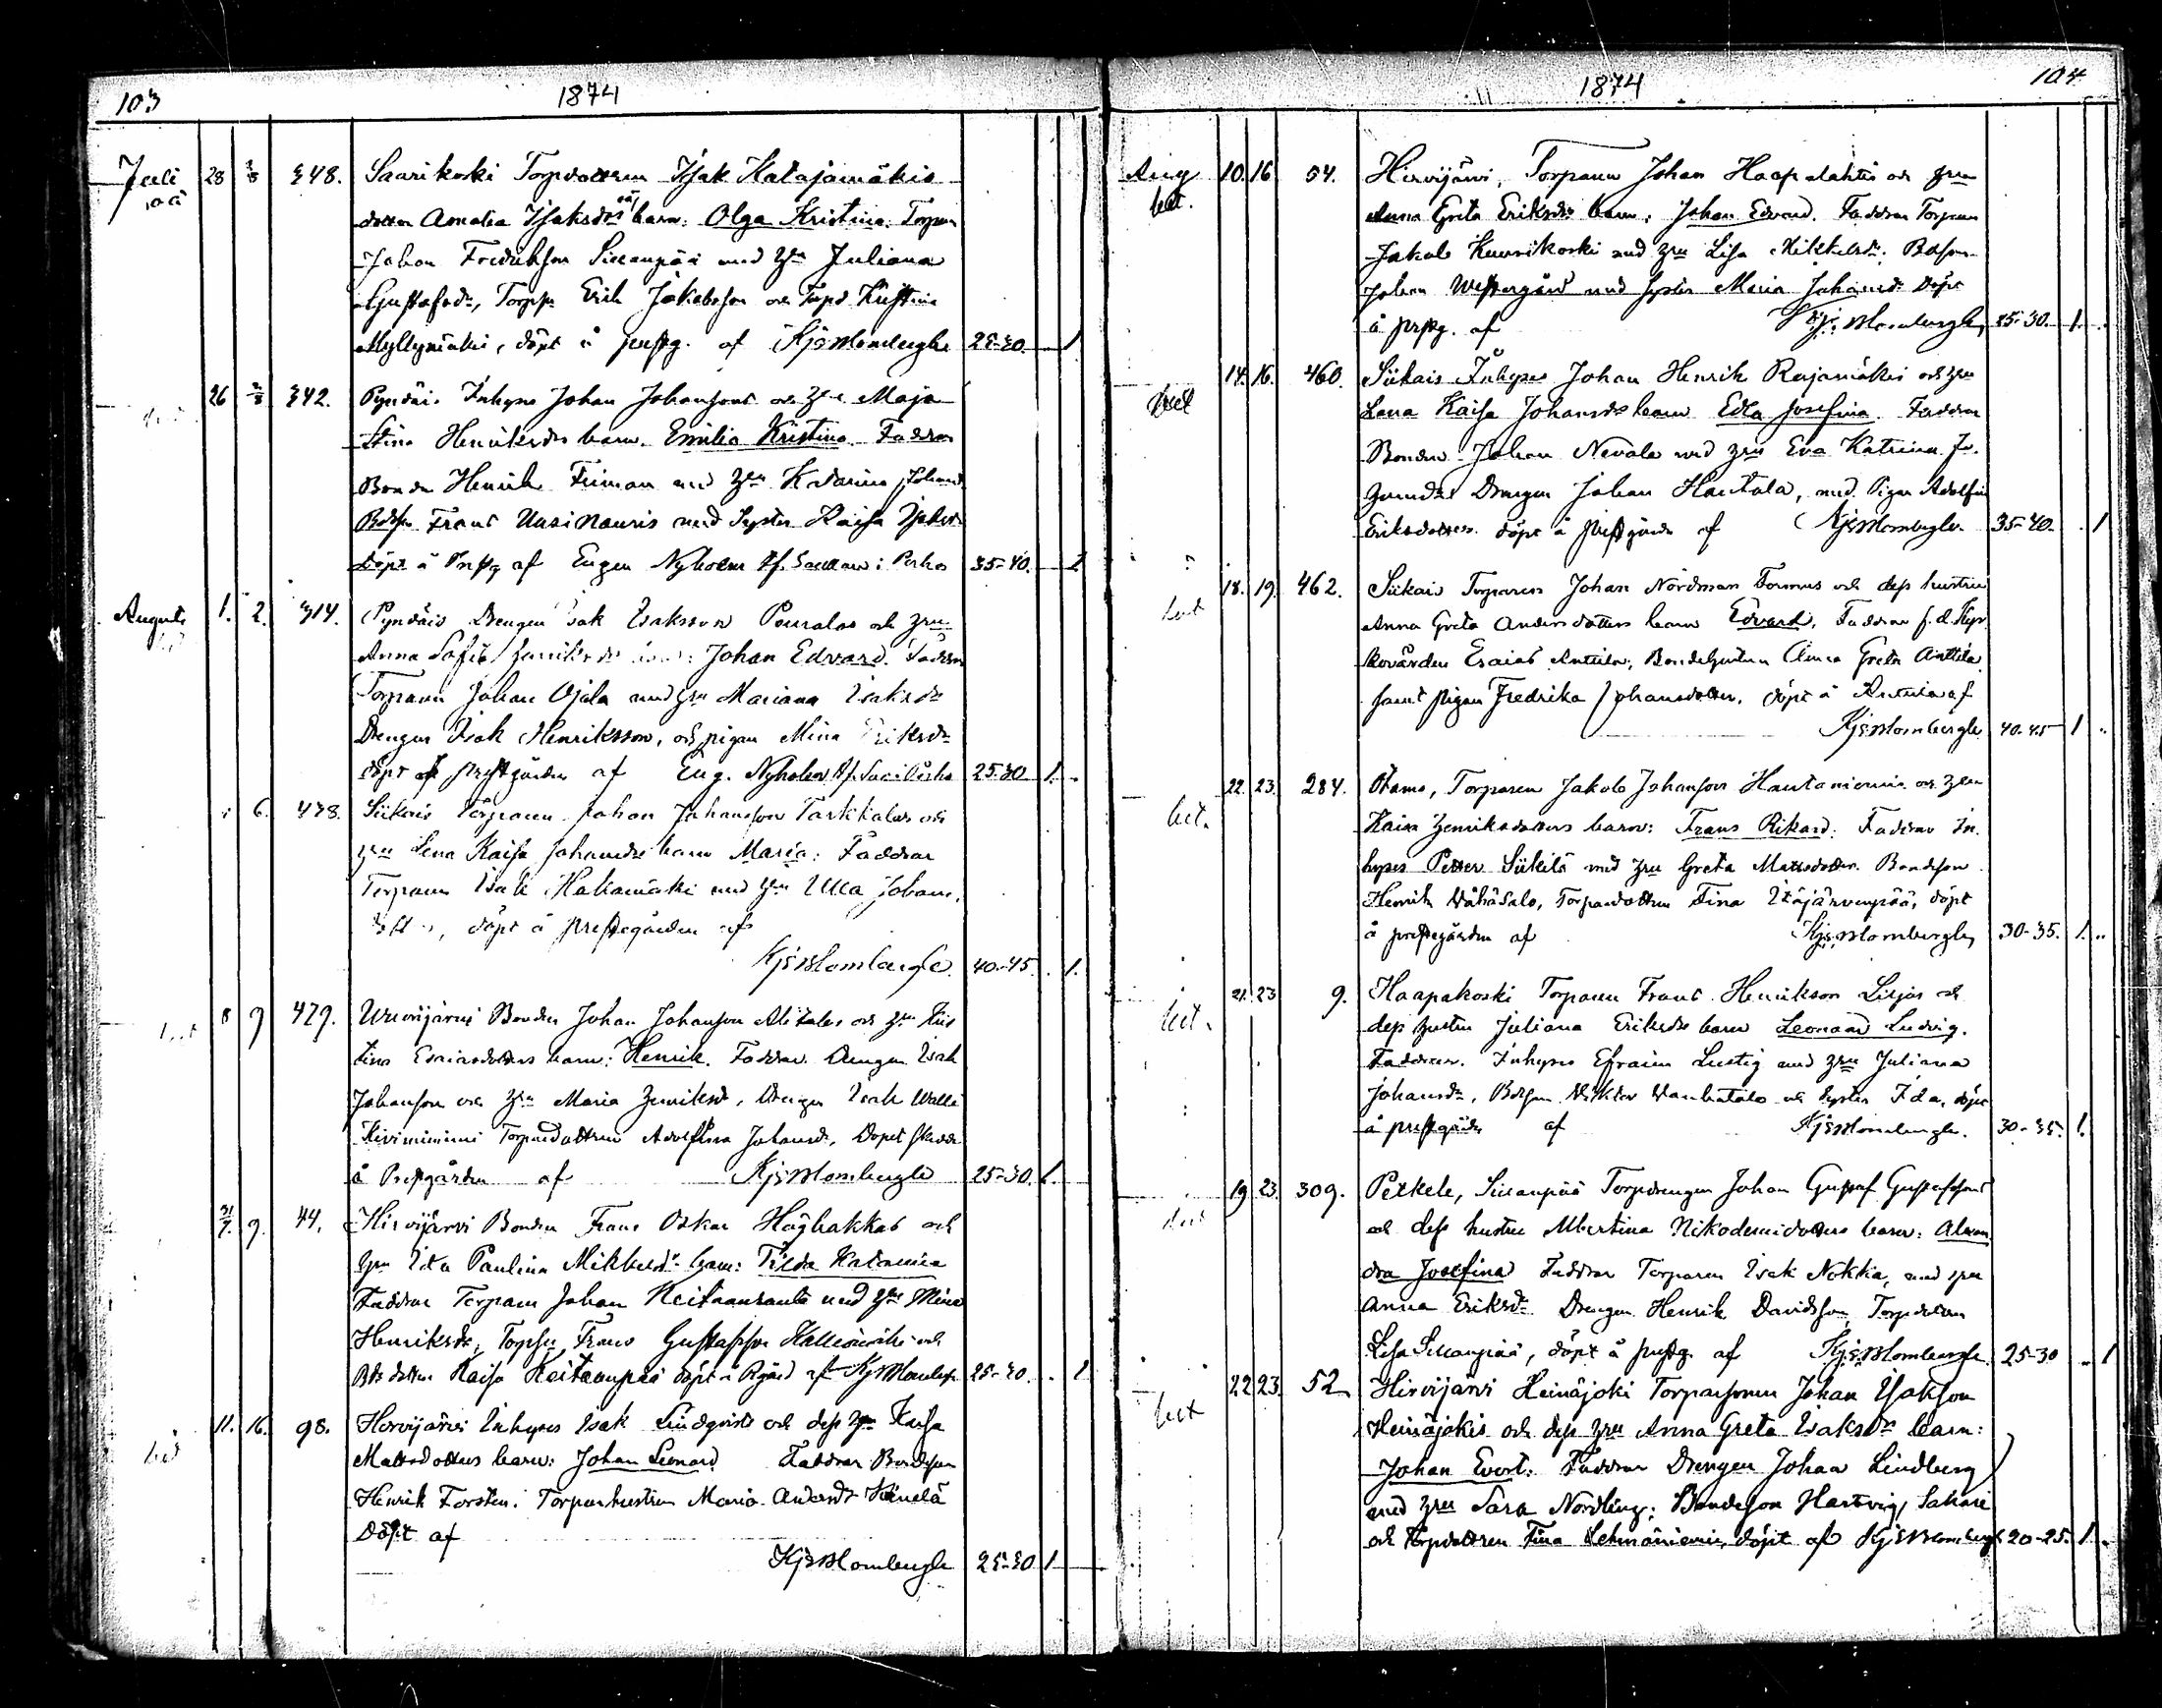 103
1874
Juli 28 2/8 348. Saarikoski Torpdottren Isak Katajamäkis
dotter Amalia Isaksdrs barn: Olga Kristina. Torpar
Johan Fredrikson Sillanpää med hru Juliana
Gustafsdr, Torpss Erik Jakobsson och Torpd Kristina
Myllymäki, döpt å prestg. af KJBlomberg 25-30. 1
26 2/8 342. Pyndäis Inhyses Johan Johanssons och hru Maja
Stina Henriksdrs barn. Emilia Kristina. Faddrar
Bonden Henrik Friman med hru Katarina Johansd
Bdesson Frans Uusinouris med Syster Kaisa Isaksd
Döpt å Prestg af Eugen Nyholm Sf. Sacellan i Perho 35-40. 1
Augusti 1. 2. 314. Pyndäis Drengen Isak Isaksson Pouralas och hru
Anna Sofia Henriksdr barn: Johan Edvard. Faddrar
Torparen Johan Ojala med hru Mariana Isaksdr
Drengen Isak Henriksson, och pigan Mina Eriksdr
döpt å prestgården af Eug. Nyholm Sf. Sac i Perho 25-30 1.
6. 478. Siikais Torparen Johan Johansson Tarkkalas och
hru Lena Kaisa Johansdrs barn Maria: Faddrar
Torparen Isak Hakamäki med hru Ulla Johans
dotter, döpt å prestegården af
KJBlomberg. 40-45. 1.
8 9 479. Wuorijärvi Bonden Johan Johanson Alitalos och hru Kris
tina Esaiasdotters barn: Henrik. Faddrar Drengen Isak
Johanson och hru Maria Henriksd, Drengen Isak Walli
Kiviniemi Torparedottren Adolfina Johansd, Döpet skedde
å Prestgården af KJBlomberg 25-30. 1.
31/7. 9. 44. Hirvijärvi Bonden Frans Oskar Högbakkas och
hru Ida Paulina Mikkelsdr barn: Tilda Katarina
Faddrar Torparen Johan Keitaanranta med hru Mina
Henriksdr, Torpss Frans Gustafsson Kalliomäki och
Bdedottren Kaisa Keitaanpää döpt å Pgård af KJBlomberg 25-30. 1
11. 16. 98. Hirvijärvi Inhyses Isak Lindqvists och dess hru Kaisa
Mattsdotters barn: Johan Leonard Faddrar Bondeson
Henrik Forsten. Torparehustrun Maria Andersdr
Döpt af
KJBlomberg 25-30 1
1874
104
Aug 10. 16 54. Hirvijärvi, Torparen Johan Haapalahtis och hru
bet. Anna Greta Eriksdrs barn: Johan Edvard. Faddrar Torparen
Jakob Kuusikoski med hru Lisa Mikkelsdr. Bdeson
Johan Westergård med syster Maria Johansdr Döpt
å prstg. af KJBlomberg 25-30. 1.
14. 16. 460. Siikais Inhyses Johan Henrik Rajamäkis och hru
bet Lena Kaisa Johansdrs barn Edla Josefina. Faddrar
Bonden Johan Nevala med hru Eva Katrina Jo
hansdr Drengen Johan Hautala, med Pigan Adolfina
Eriksdotter. döpt å prestgården af KJBlomberg. 35-40. 1
18. 19. 462. Siikais Torparen Johan Nordman Formus och dess hustru
bet Anna Greta Andersdotters barn Edvard, Faddrar f.d. Kyr
kovärden Esaias Anttila, Bondehustrun Anna Greta Anttila
samt pigan Fredrika Johansdotter, döpt å Anttila af
KJBlomberg 40-45 1
22. 23. 284. Ohamo, Torparen Jakob Johanson Hautaniemis och hru
bet. Kaisa Henriksdotters barn: Frans Rikard. Faddrar In
hyses Petter Siikilä med hru Greta Mattsdotter. Bondeson
Henrik Wähäsalo, Torparedottren Fina Itäjärvenpää, döpt
å prestgården af KJBlomberg 30-35. 1.
21. 23 9. Haapakoski Torparen Frans Henrikson Liljas och
bet. dess hustru Juliana Eriksdrs barn Leonard Ludvig.
Faddrar. Inhyses Efraim Lustig med hru Juliana
Johansdr, Bdeson Viktor Vanhatalo och Syster Ida, döpt
å prestgården af KJBlomberg. 30-35. 1.
19 23. 309. Petkele, Sillanpää Torpdrengen Johan Gustaf Gustafssons
och dess hustru Albertina Nikodemidotters barn: Alexan
dra Josefina Faddrar Torparen Isak Nokka, med hru
Anna Eriksdr Drengen Henrik Davidsson, Torpdottren
Lisa Sillanpää, döpt å prstg. af KJBlomberg 25-30 1
22 23. 52 Hirvijärvi Heinäjoki Torparsonen Johan Isakson
bet Heinäjokis och dess hru Anna Greta Isaksdrs barn:
Johan Evert: Faddrar Drengen Johan Lindberg
med hru Sara Nordling: Bondeson Hartvig Sakari
och Torpdottren Fina Lehmäniemi, döpt af KJBlomberg 20-25. 1.